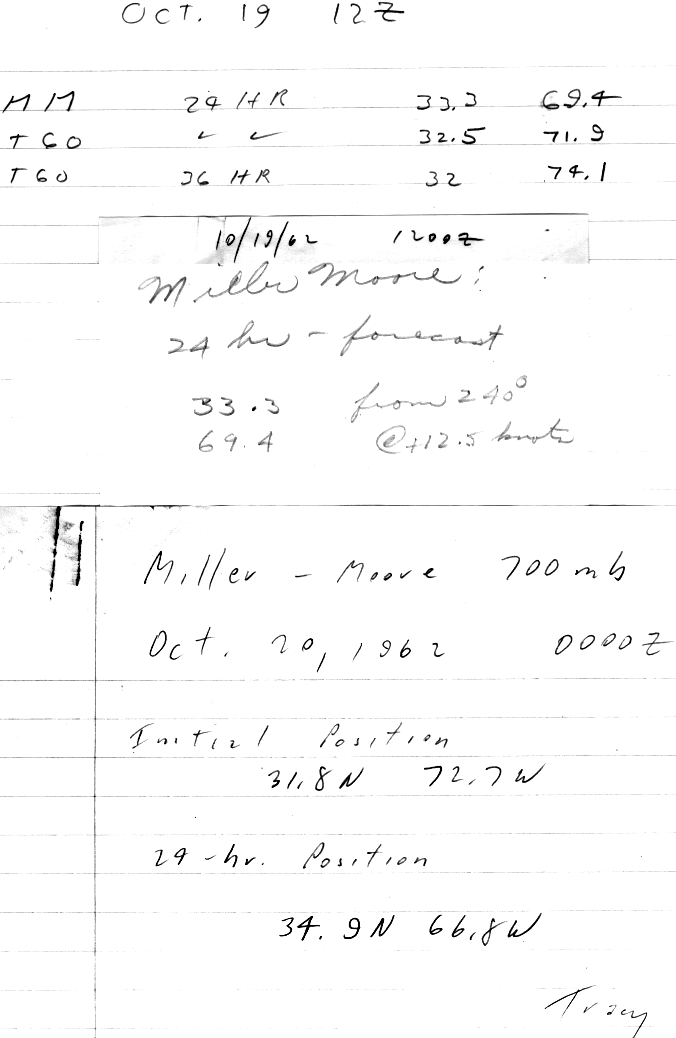 OCT. 19 12Z
MM 24 HR 33.3 69.4
T60 " " 32.5 71.9
T60 36 HR 32 74.1
10/19/62 1200Z
Miller Moore:
24 hr - forecast
33.3 from 240°
69.4 @ +12.5 knots
Miller - Moore 700 mb
Oct. 20, 1962 0000Z
Initial Position
31.8N 72.7W
24-hr. Position
34.9N 66.8W
Tracy